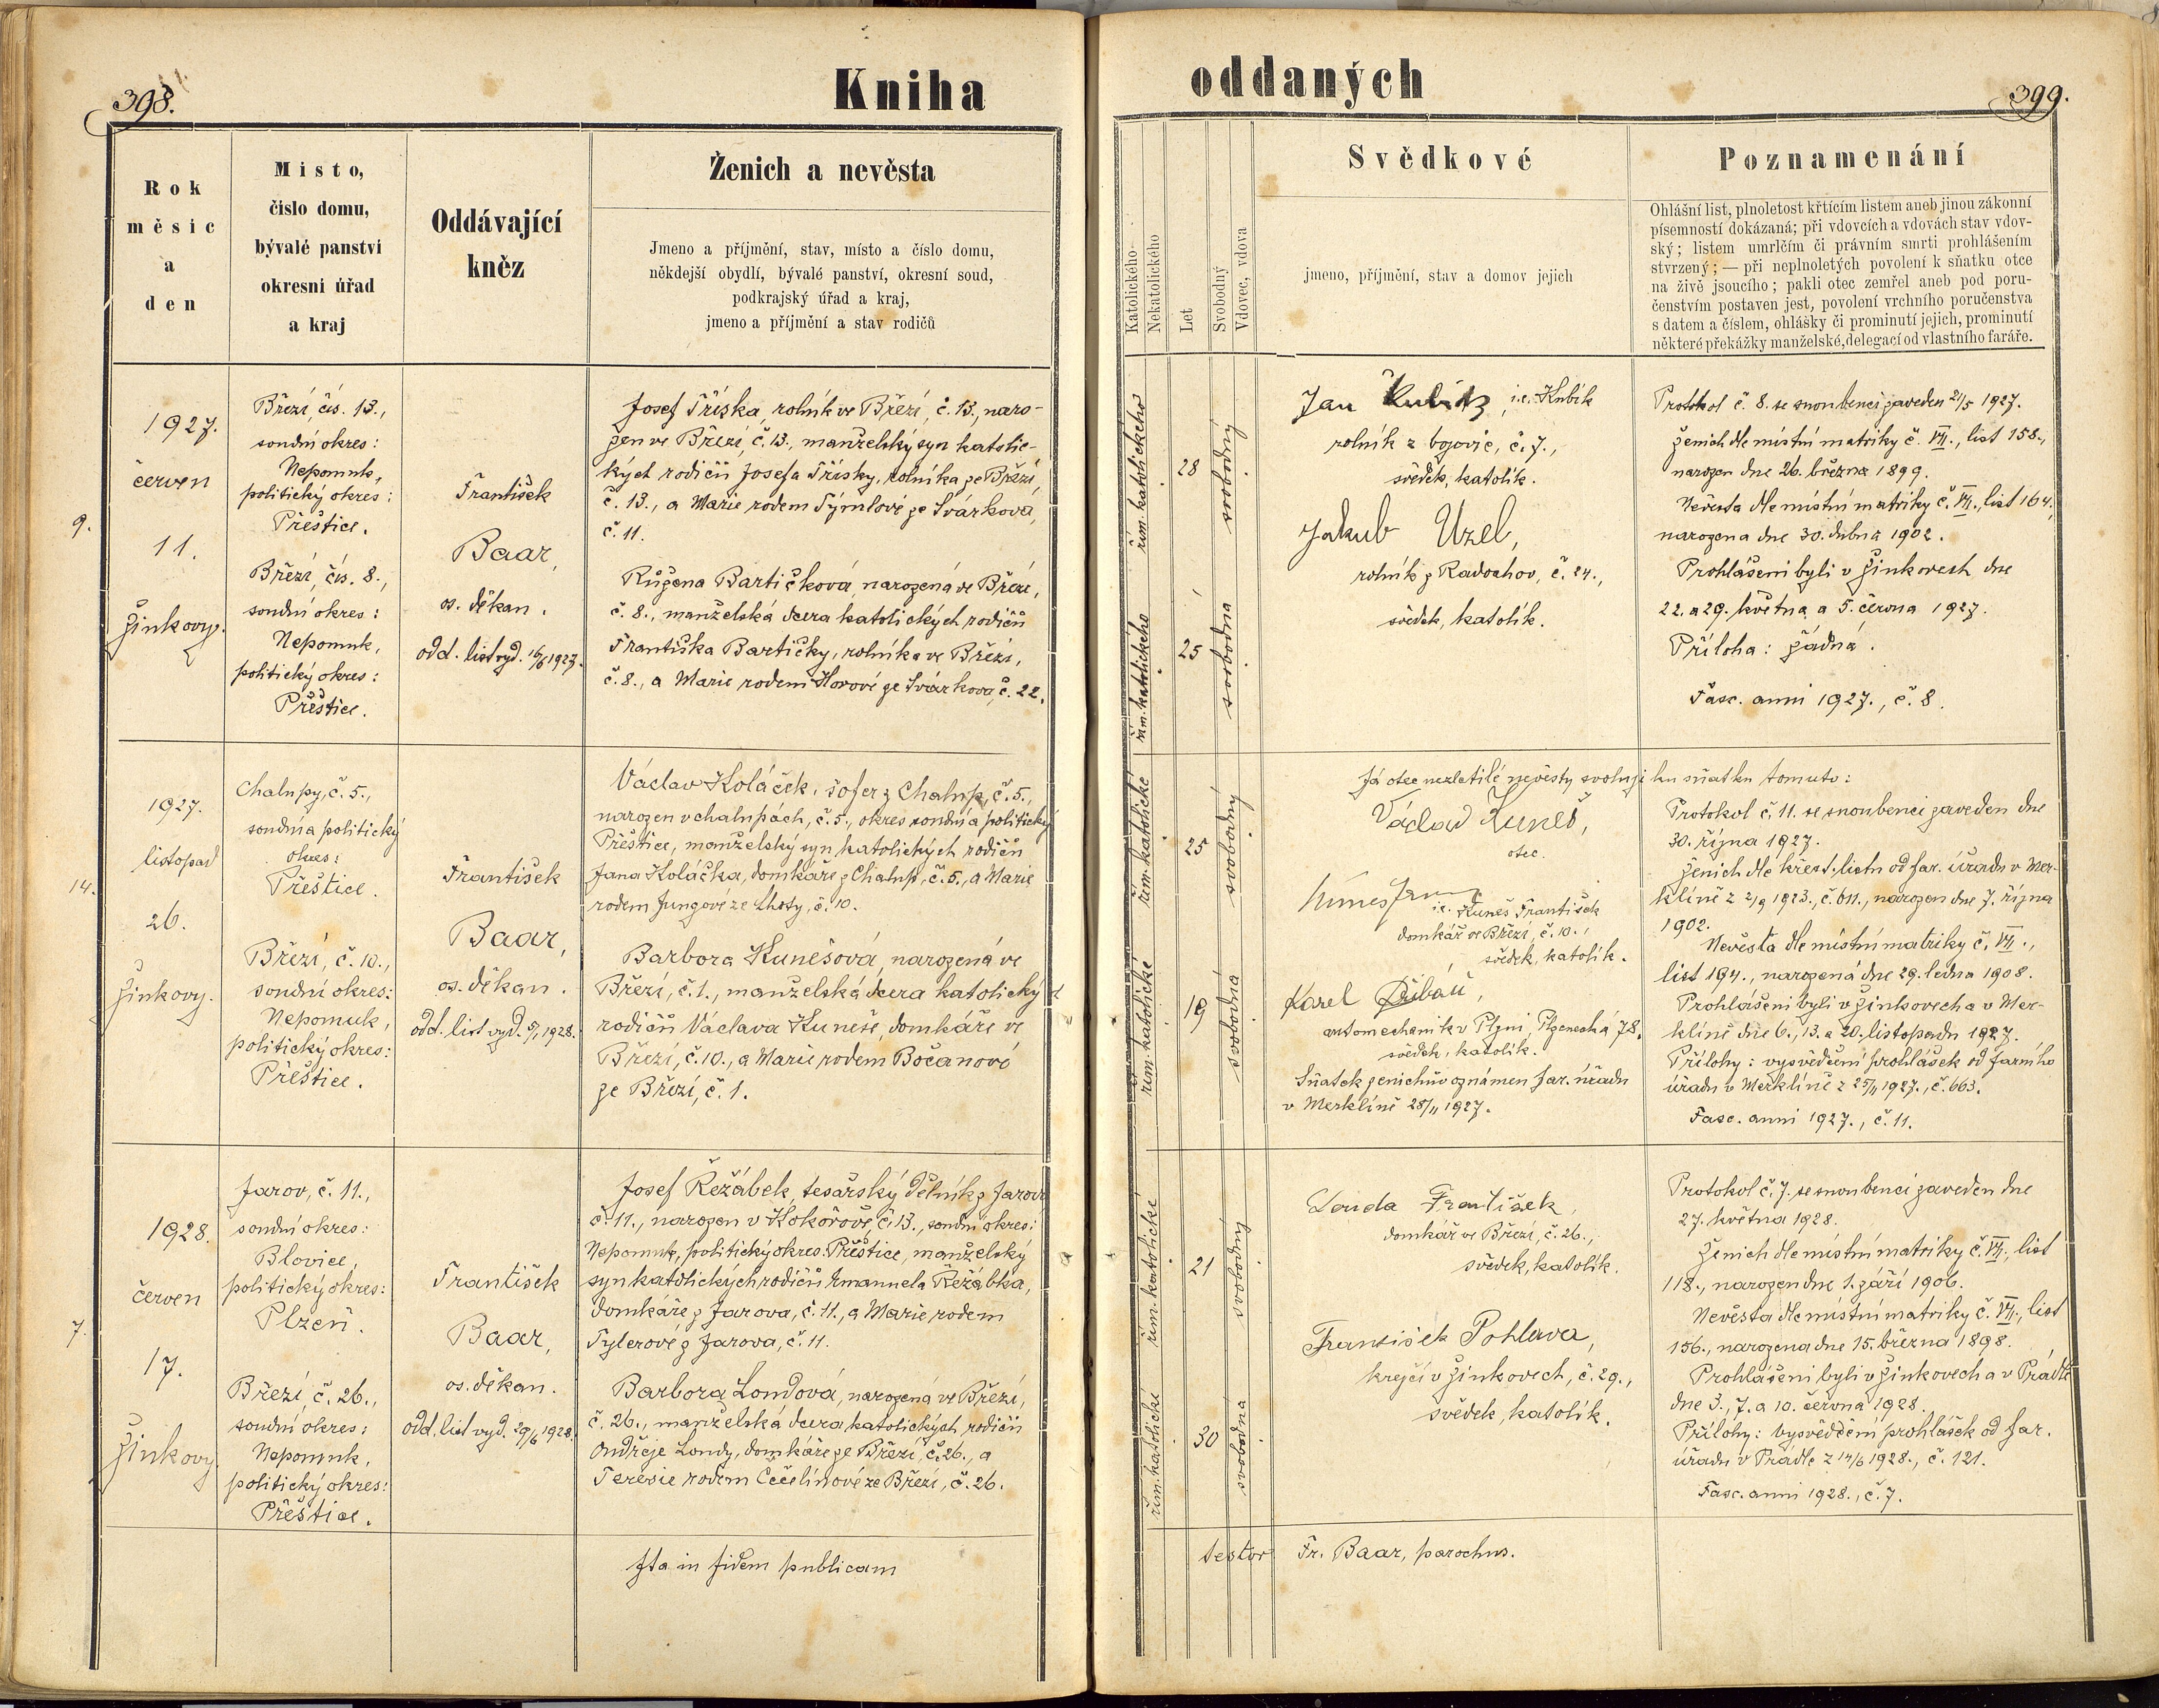 398.
Kniha
Rok
měsíc
a
den
Místo,
číslo domu,
bývalé panství
okresní úřad
a kraj
Oddávající
kněz
Ženich a nevěsta
Jmeno a příjmění, stav, místo a číslo domu,
někdejší obydlí, bývalé panství, okresní soud,
podkrajský úřad a kraj,
jmeno a příjmění a stav rodičů
9.
1927.
červen
11.
Žinkovy.
Březí, čís. 13.,
soudní okres:
Nepomuk,
politický okres:
Přeštice.
Březí, čís. 8.,
soudní okres:
Nepomuk,
politický okres:
Přeštice.
František
Baar,
os. děkan.
odd. list vyd. 16/6 1927.
Josef Tříska, rolník ve Březí, č. 13., naro-
zen ve Březí, č. 13., manželský syn katolic-
kých rodičů Josefa Třísky, rolníka ze Březí,
č. 13., a Marie rodem Týmlové ze Svárkova,
č. 11.
Růžena Bartičková, narozená ve Březí,
č. 8., manželská dcera katolických rodičů
Františka Bartičky, rolníka ve Březí,
č. 8., a Marie rodem Horové ze Svárkova, č. 22.
14.
1927.
listopad
26.
Žinkovy.
Chalupy, č. 5.,
soudní a politický
okres:
Přeštice.
Březí, č. 10.,
soudní okres:
Nepomuk,
politický okres:
Přeštice.
František
Baar,
os. děkan.
odd. list vyd. 5/1 1928.
Václav Koláček, šofer z Chalup, č. 5.,
narozen v chalupách, č. 5., okres soudní a politický
Přeštice, manželský syn katolických rodičů
Jana Koláčka, domkáře z Chalup, č. 5., a Marie
rodem Jungové ze Lhoty, č. 10.
Barbora Kunešová, narozená ve
Březí, č. 1., manželská dcera katolických
rodičů Václava Kuneše, domkáře ve
Březí, č. 10., a Marie rodem Bočanové
ze Březí, č. 1.
7.
1928.
červen
17.
Žinkovy.
Jarov, č. 11.,
soudní okres:
Blovice,
politický okres:
Plzeň.
Březí, č. 26.,
soudní okres:
Nepomuk,
politický okres:
Přeštice.
František
Baar,
os. děkan.
odd. list vyd. 29/6 1928.
Josef Řežábek, tesařský dělník z Jarova
č. 11., narozen v Kokořově, č. 13., soudní okres:
Nepomuk, politický okres: Přeštice, manželský
syn katolických rodičů Emanuela Řežábka,
domkáře z Jarova, č. 11., a Marie rodem
Tylerové z Jarova, č. 11.
Barbora Londová, narozená ve Březí,
č. 26., manželská dcera katolických rodičů
Ondřeje Londy, domkáře ze Březí, č. 26., a
Teresie rodem Cečelínové ze Březí, č. 26.
Ita in fidem publicam
oddaných
399.
Katolického
Nekatolického
Let
Svobodný
Vdovec, vdova
Svědkové
jmeno, příjmění, stav a domov jejich
Poznamenání
Ohlášní list, plnoletost křtícím listem aneb jinou zákonní
písemností dokázaná; při vdovcích a vdovách stav vdov-
ský; listem umrlčím či právním smrti prohlášením
stvrzený; — při neplnoletých povolení k sňatku otce
na živě jsoucího; pakli otec zemřel aneb pod poru-
čenstvím postaven jest, povolení vrchního poručenstva
s datem a číslem, ohlášky či prominutí jejich, prominutí
některé překážky manželské, delegací od vlastního faráře.
řím. katolického
28
svobodný
řím. katolického
25
svobodná
Jan Kubík, i.e. Kubík
rolník z , č. 7.,
svědek, katolík.
Jakub Uzel,
rolník z Radochov, č. 24.,
svědek, katolík.
Protokol č. 8. se snoubenci zaveden 21/5 1927.
Ženich dle místní matriky č. VII., list 158.,
narozen dne 26. března 1899.
Nevěsta dle místní matriky č. VII., list 164.,
narozena dne 30. dubna 1902.
Prohlášeni byli v Žinkovech dne
22. a 29. května a 5. června 1927.
Příloha: žádná.
Fasc. anni 1927., č. 8.
řím. katolické
25
svobodný
řím. katolické
19
svobodná
Já otec nezletilé nevěsty svoluji ku sňatku tomuto:
Václav Kuneš,
otec.
Kuneš
i.e. Kuneš František
domkář ve Březí, č. 10.,
svědek, katolík.
Karel Přibáň,
automechanik v Plzni, Plzenecká 78.
svědek, katolík.
Sňatek ženichův oznámen far. úřadu
v Merklíně 28/11 1927.
Protokol č. 11. se snoubenci zaveden dne
30. října 1927.
Ženich dle křest. listu od far. úřadu v Mer-
klíně z 2/9 1923., č. 611., narozen dne 7. října
1902.
Nevěsta dle místní matriky č. VII.,
list 194., narozená dne 29. ledna 1908.
Prohlášeni byli v Žinkovech a v Mer-
klíně dne 6., 13. a 20. listopadu 1927.
Přílohy: vysvědčení prohlášek od farního
úřadu v Merklíně z 25/11 1927., č. 663.
Fasc. anni 1927., č. 11.
řím. katolické
21
svobodný
řím. katolické
30
svobodná
Londa František,
domkář ve Březí, č. 26.,
svědek, katolík.
František Pohlava,
krejčí v Žinkovech, č. 29.,
svědek, katolík.
Protokol č. 7. se snoubenci zaveden dne
27. května 1928.
Ženich dle místní matriky č. VII., list
118., narozen dne 1. září 1906.
Nevěsta dle místní matriky č. VII., list
156., narozena dne 15. března 1898.
Prohlášeni byli v Žinkovech a v Prádle
dne 3., 7. a 10. června 1928.
Přílohy: vysvědčení prohlášek od far.
úřadu v Prádle z 14/6 1928., č. 121.
Fasc. anni 1928., č. 7.
testor Fr. Baar, parochus.